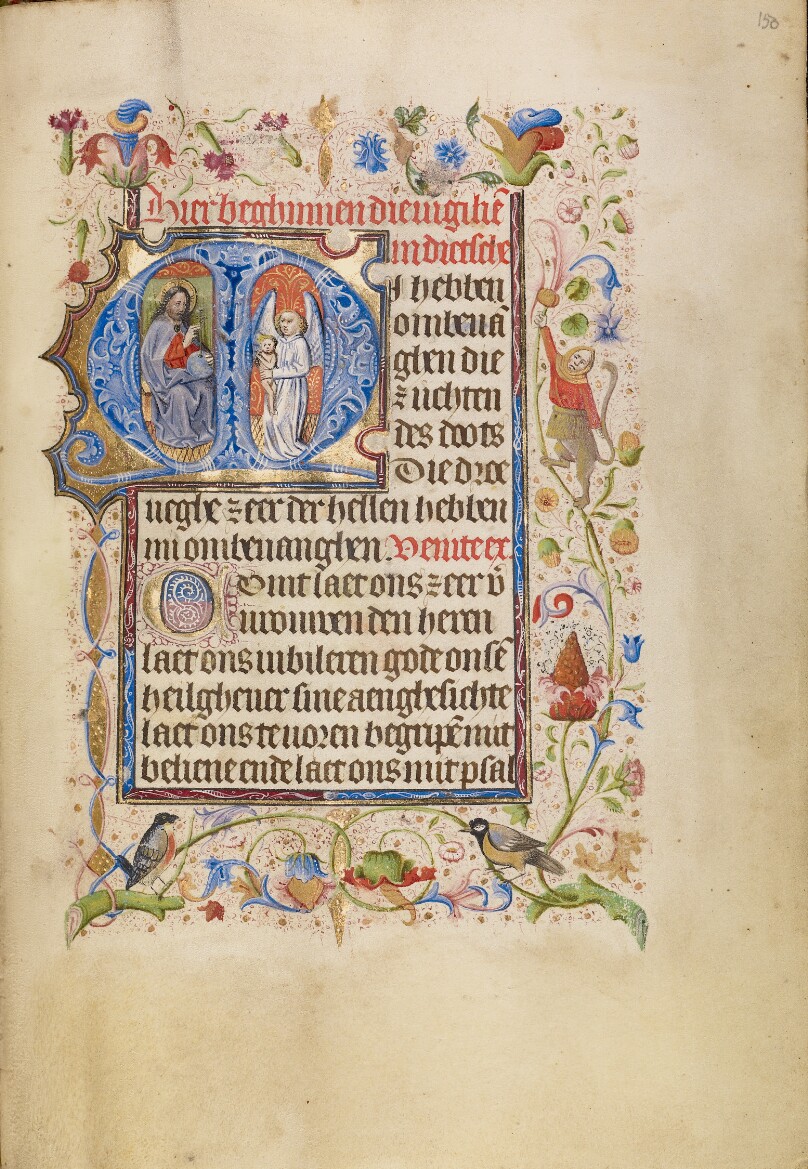 150
Hier beghinnen die vigiliē
in dietsche
MI hebben
ombeuā
ghen die
zuchten
des doots
Die dree
weghe zeer der hellen hebben
mi ombeuanghen. Venite ex.
Comt laet ons zeer v̄
urouwen den heren
laet ons iubileren gode onsē
heilgheuer sine aenghesichte
laet ons te uoren begripē mit
beliene ende laet ons mit psal